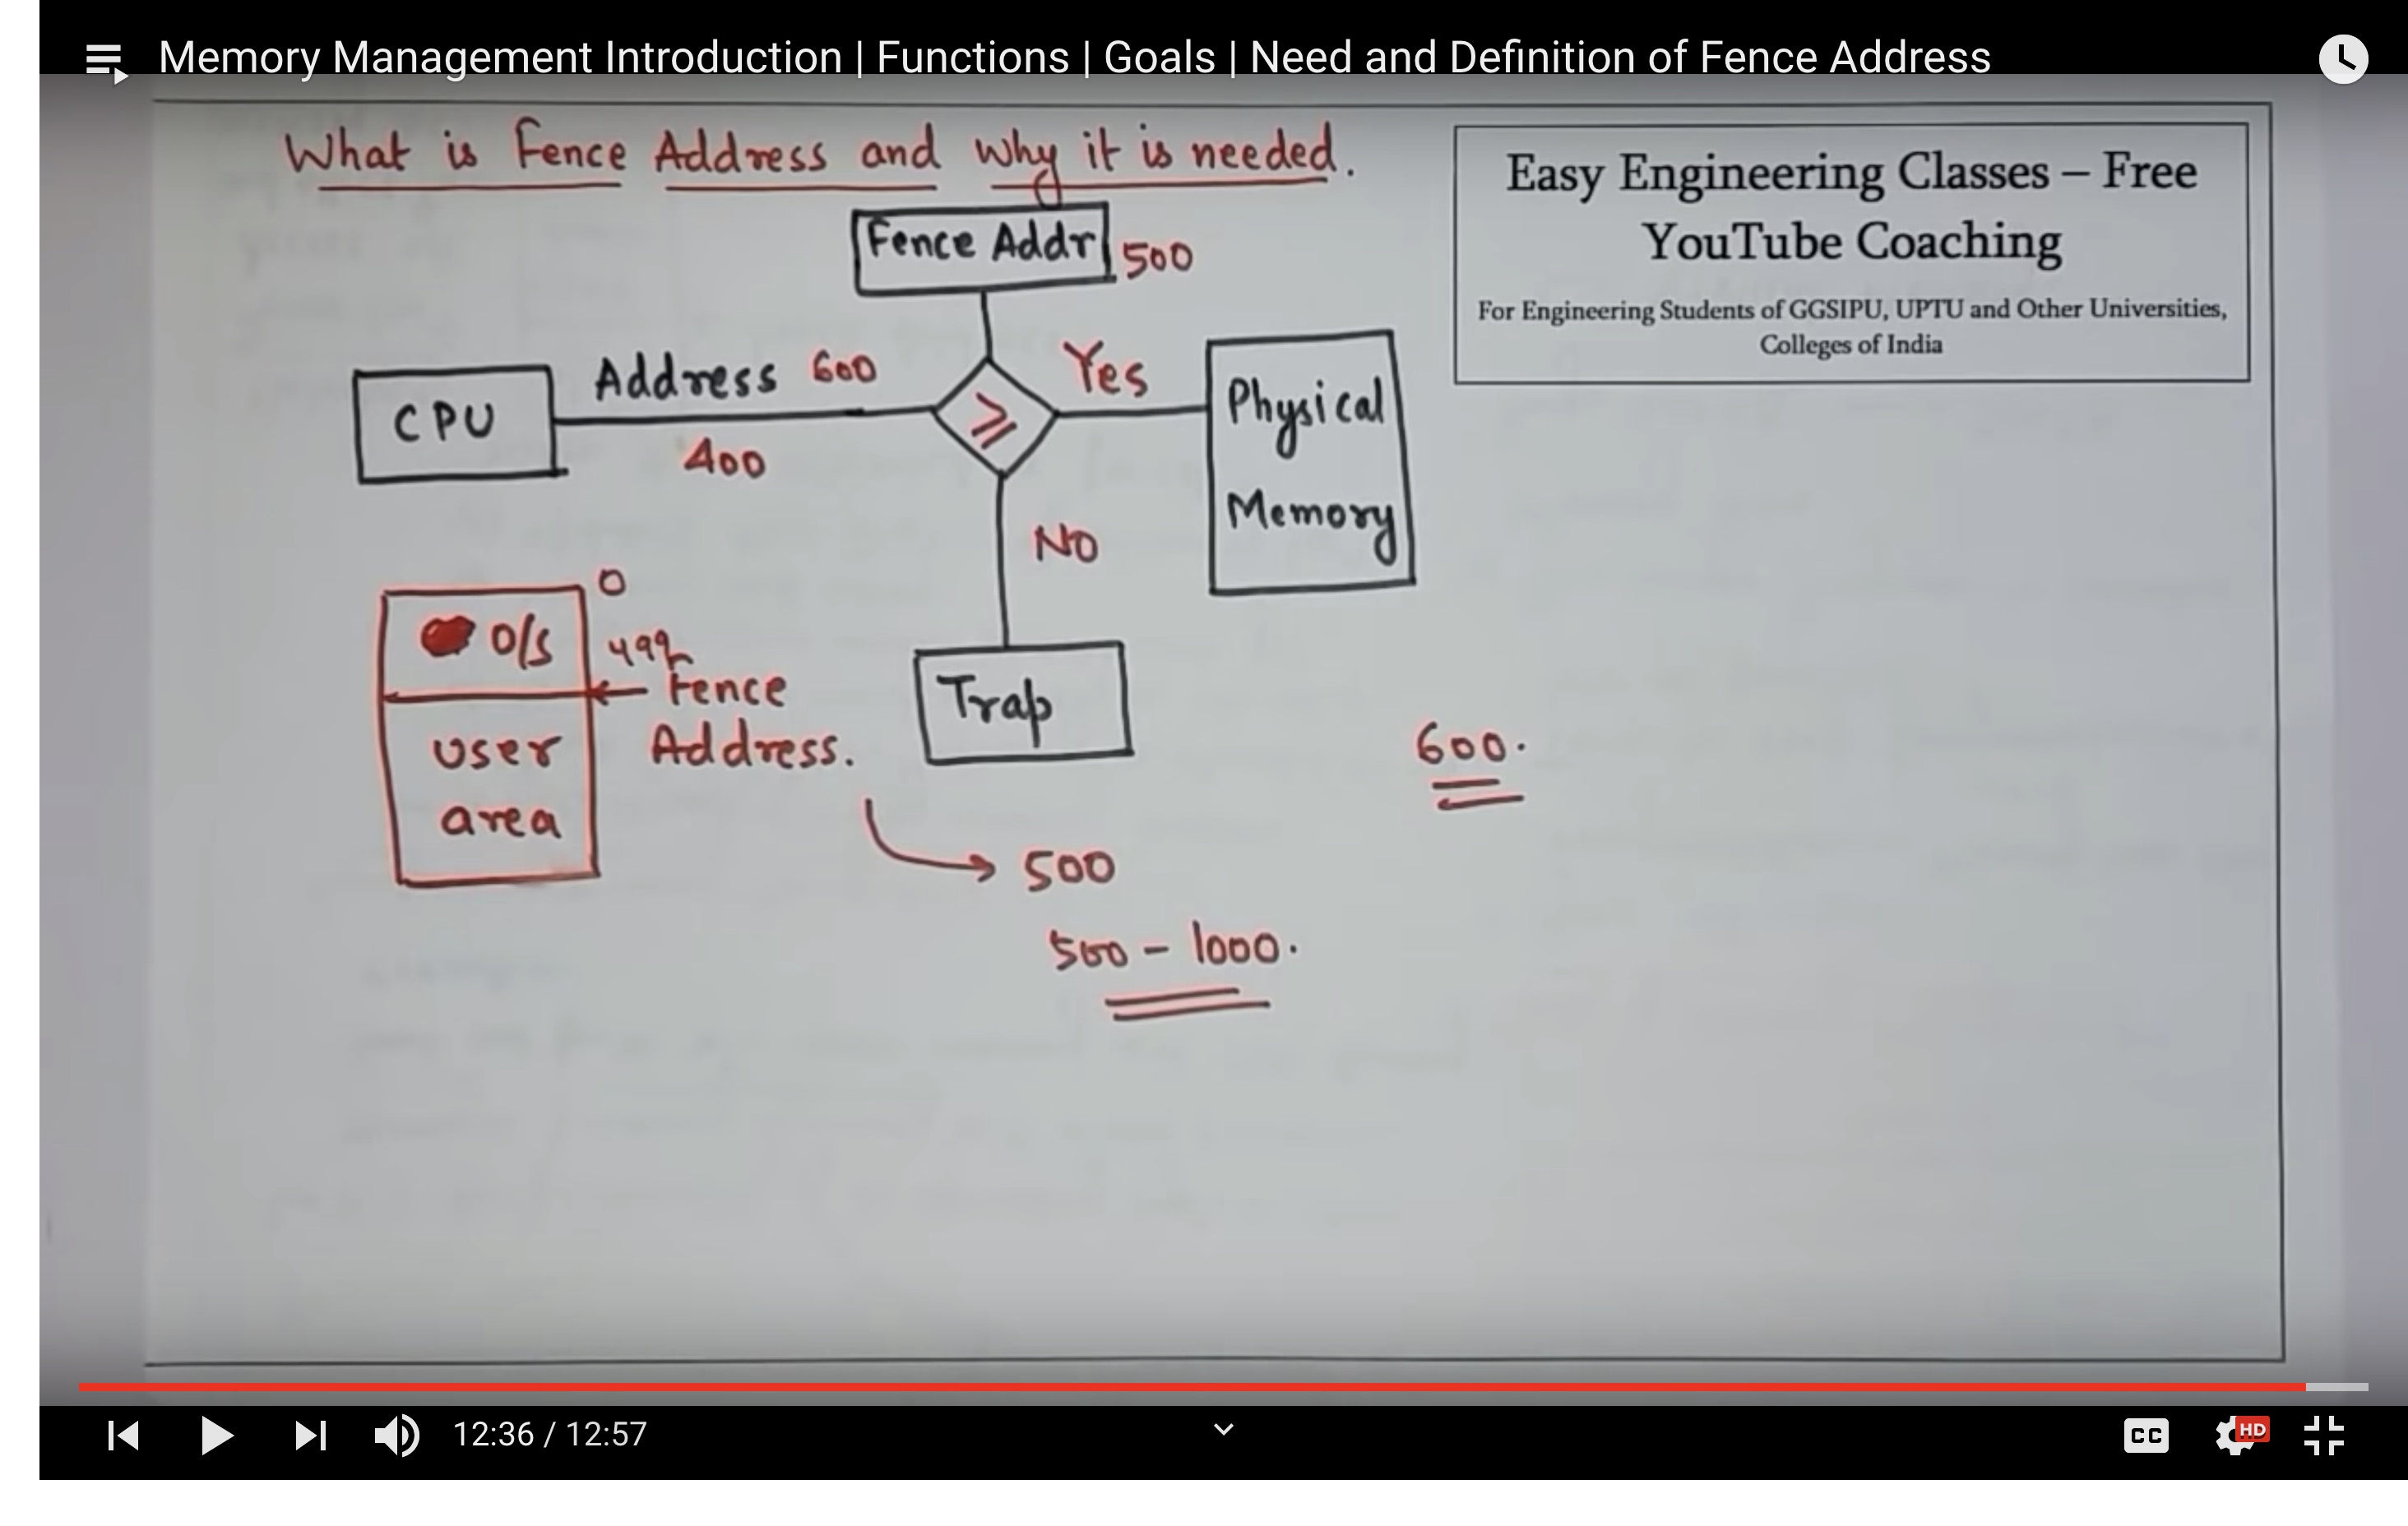 Memory Management Introduction | Functions | Goals | Need and Definition of Fence Address
What is Fence Address and why it is needed.
Easy Engineering Classes – Free
YouTube Coaching
For Engineering Students of GGSIPU, UPTU and Other Universities,
Colleges of India
Fence Addr 500
CPU
Address 600
400
≥
Yes
Physical
Memory
NO
Trap
0
O/S
499
Fence
Address.
user
area
600.
500
500 - 1000.
12:36 / 12:57
CC
HD